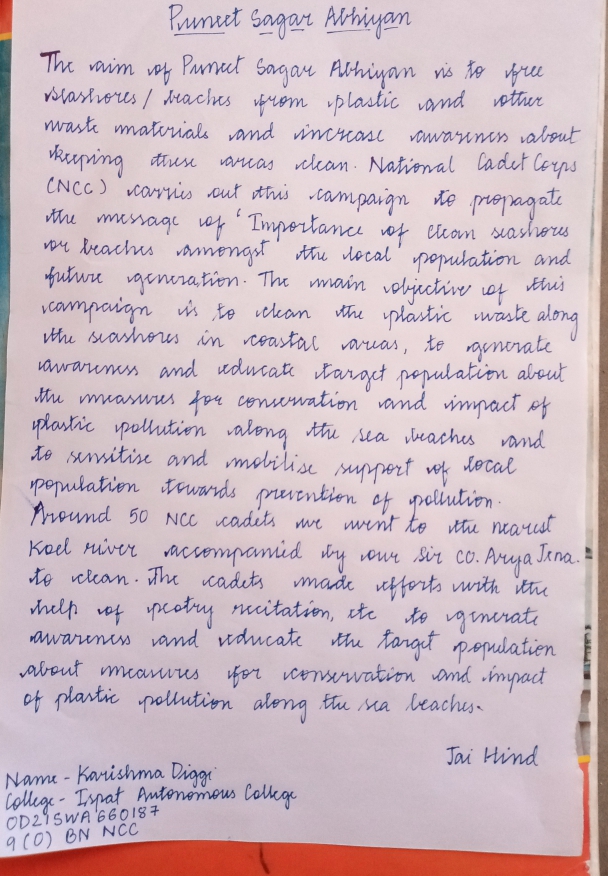 Puneet Sagar Abhiyan
The aim of Puneet Sagar Abhiyan is to free
seashores/ beaches from plastic and other
waste materials and increase awareness about
keeping these areas clean. National Cadet Corps
(NCC) carries out this campaign to propagate
the message of 'Importance of clean seashores
or beaches amongst the local population and
future generation. The main objective of this
campaign is to clean the plastic waste along
the seashores in coastal areas, to generate
awareness and educate target population about
the measures for conservation and impact of
plastic pollution along the sea beaches and
to sensitise and mobilise support of local
population towards prevention of pollution.
Around 50 NCC cadets we went to the nearest
Koel river accompanied by our Sir CO. Arya Jena.
to clean. The cadets made efforts with the
help of peotry recitation, etc to generate
awareness and educate the target population
about measures for conservation and impact
of plastic pollution along the sea beaches.
Jai Hind
Name - Karishma Diggi
College - Ispat Autonomous College
OD21SWA660187
9(O) BN NCC